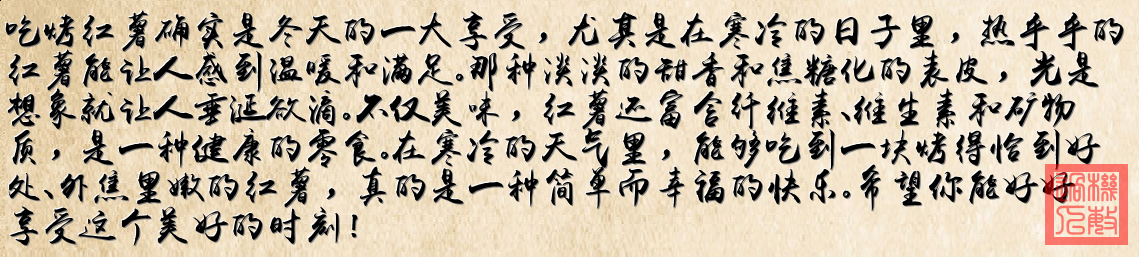 吃烤红薯确实是冬天的一大享受，尤其是在寒冷的日子里，热乎乎的
红薯能让人感到温暖和满足。那种淡淡的甜香和焦糖化的表皮，光是
想象就让人垂涎欲滴。不仅美味，红薯还富含纤维素、维生素和矿物
质，是一种健康的零食。在寒冷的天气里，能够吃到一块烤得恰到好
处、外焦里嫩的红薯，真的是一种简单而幸福的快乐。希望你能好好
享受这个美好的时刻！